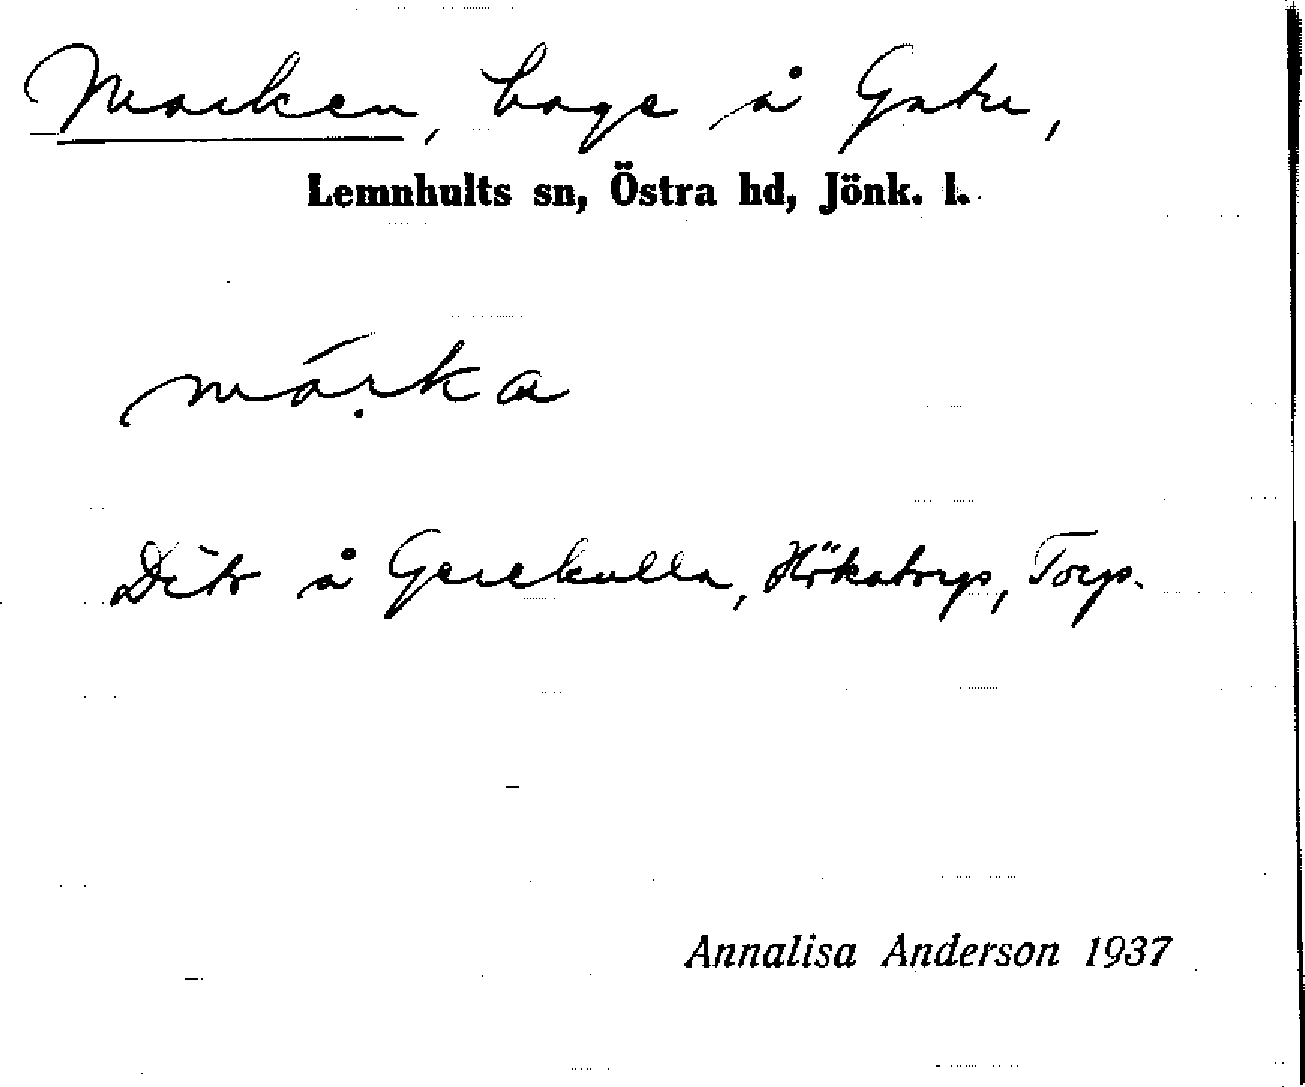 Marken, hage å Gatu,
Lemnhults sn, Östra hd, Jönk. l.
márka
Dito å Gerekulla, Hökatorp, Torp.
Annalisa Anderson 1937